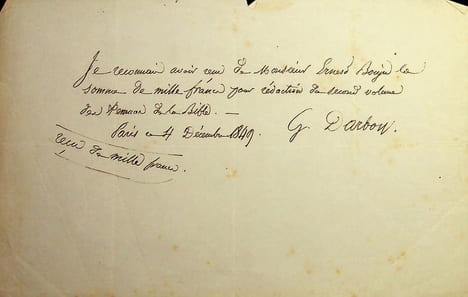 Je reconnais avoir reçu de Monsieur Ernest Bourjé la
somme de mille francs pour rédaction du second volume
des Femmes de la Bible. —
Paris ce 4 Décembre 1849.
G. Darboy.
reçu de mille francs.